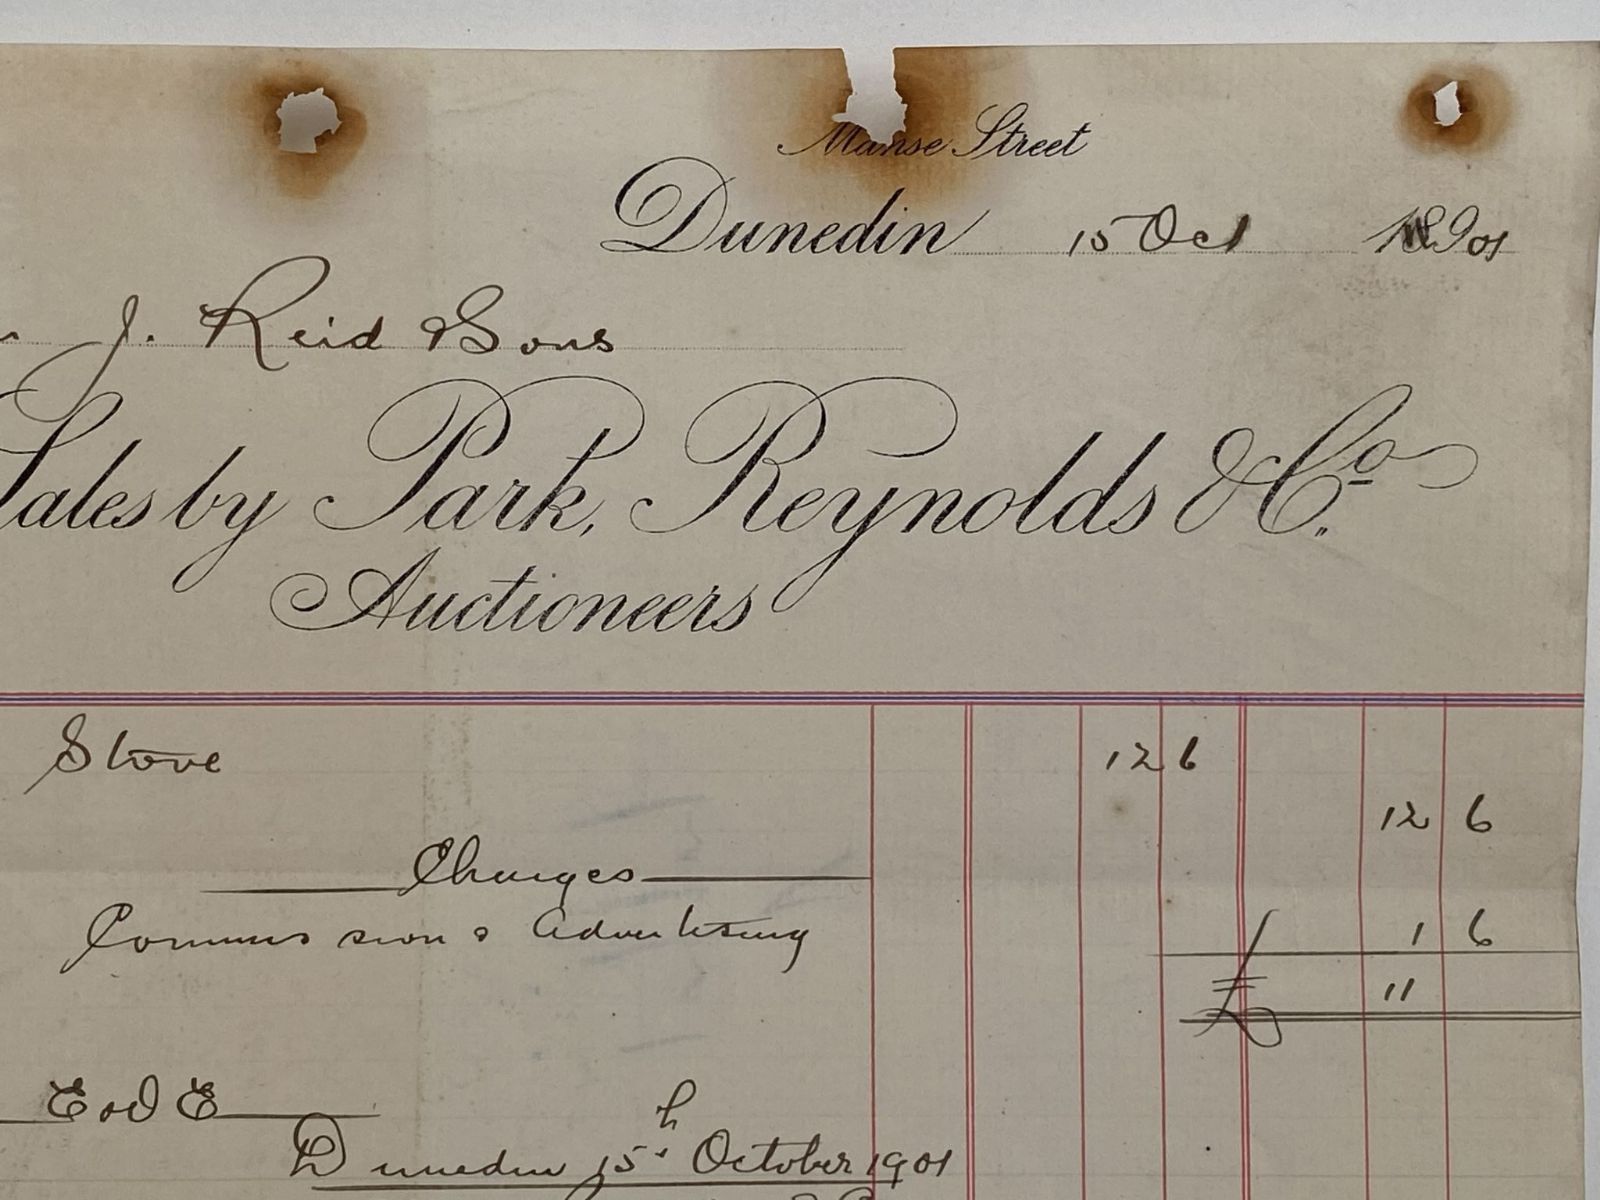 Manse Street
Dunedin 15 Oct 1901
J. Reid & Sons
Sales by Park, Reynolds & Co.
Auctioneers
Stove 12 6
12 6
Charges
Commission & Advertising 1 6
£ 11
E and E
Dunedin 15th October 1901